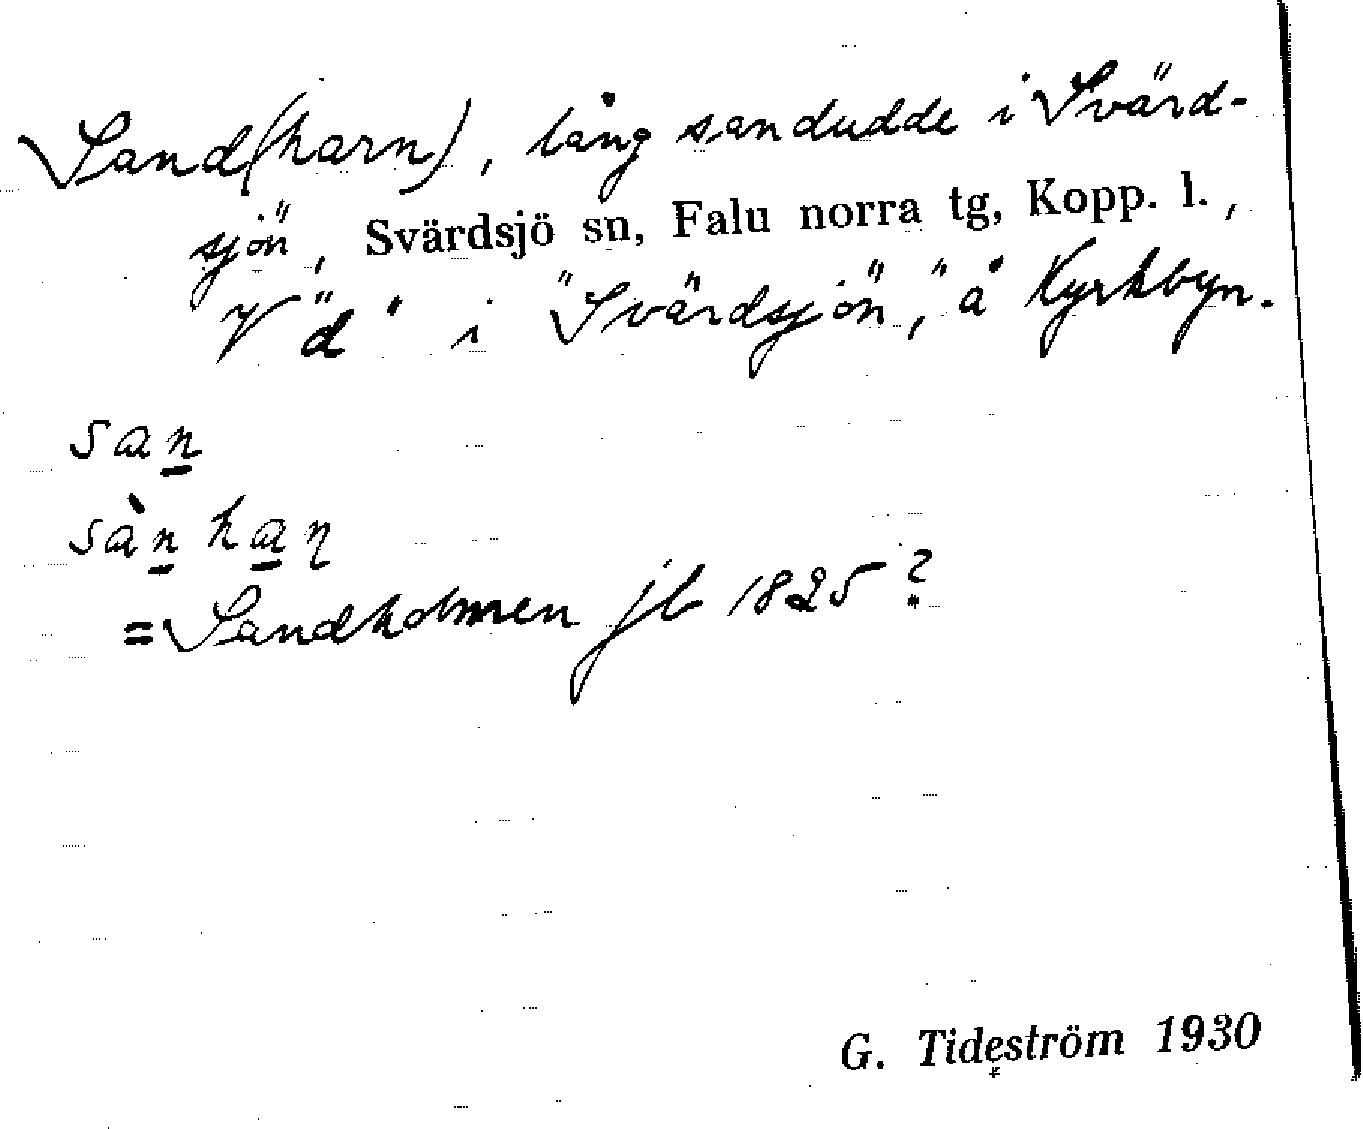 Sand(harn), lång sandudde i "Svärd-
sjön", Svärdsjö sn, Falu norra tg, Kopp. l.,
V "d" i "Svärdsjön", å Kyrkbyn.
san
sàn han
= Sandholmen jb 1825?
G. Tideström 1930